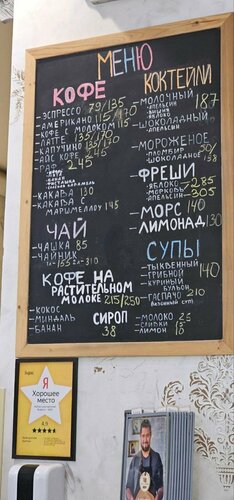 МЕНЮ
КОФЕ
- ЭСПРЕССО 79/135
- АМЕРИКАНО 115/170
- КОФЕ С МОЛОКОМ 115
- ЛАТТЕ 135/170
- КАПУЧИНО 135/170
- АЙС КОФЕ 145
- РАФ 245
- КАКАВА 130
- КАКАВА С
МАРШМЕЛЛОУ 145
ЧАЙ
- ЧАШКА 85
- ЧАЙНИК
1л-155 2л-310
КОФЕ НА
РАСТИТЕЛЬНОМ
МОЛОКЕ 215/250
- КОКОС
- МИНДАЛЬ
- БАНАН
СИРОП
38
КОКТЕЙЛИ
- МОЛОЧНЫЙ 187
- АПЕЛЬСИН
- ВИШНЯ
- ЯБЛОКО
- ШОКОЛАДНЫЙ
- АПЕЛЬСИН
- МОРОЖЕНОЕ
- ПЛОМБИР
- ШОКОЛАДНОЕ 158
ФРЕШИ
- ЯБЛОКО 285
- МОРКОВЬ
- АПЕЛЬСИН 305
- МОРС 140
- ЛИМОНАД 130
СУПЫ
- ТЫКВЕННЫЙ
- ГРИБНОЙ 140
- КУРИНЫЙ
БУЛЬОН
- ГАСПАЧО 210
- МОЛОКО 25
- СЛИВКИ
- ЛИМОН
Я
Хорошее
место
4,9